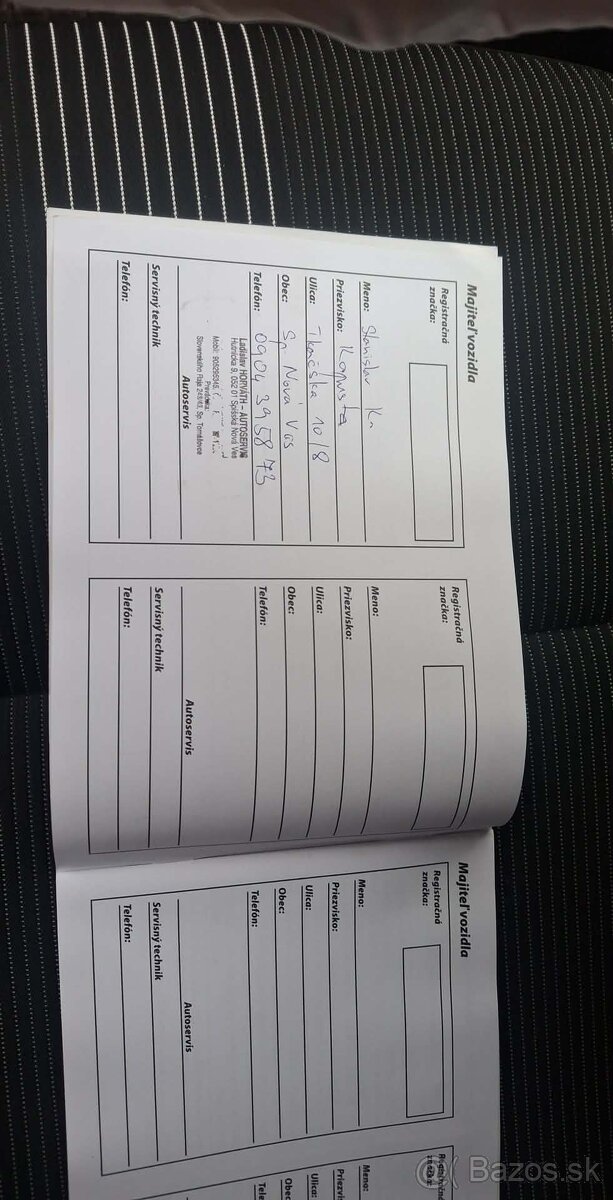 Majiteľ vozidla
Registračná
značka:
Meno: Stanislav
Priezvisko: Kapusta
Ulica: Tkáčska 10/8
Obec: Sp. Nová Ves
Telefón: 0904 395873
Ladislav HORVÁTH - AUTOSERVIS
Hutnícka 9, 052 01 Spišská Nová Ves
Mobil: 905269345,
Prevádzka:
Slovenského Raja 243/43, Sp. Tomášovce
Autoservis
Servisný technik
Telefón:
Registračná
značka:
Meno:
Priezvisko:
Ulica:
Obec:
Telefón:
Autoservis
Servisný technik
Telefón:
Majiteľ vozidla
Registračná
značka:
Meno:
Priezvisko:
Ulica:
Obec:
Telefón:
Autoservis
Servisný technik
Telefón:
Registračná
značka:
Meno:
Priezvisko:
Ulica:
Obec:
Telefón:
Bazos.sk